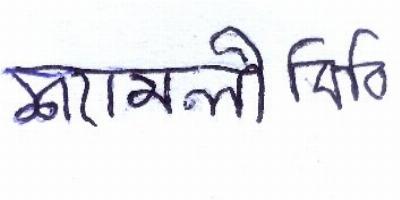 শ্যামলী গিরি